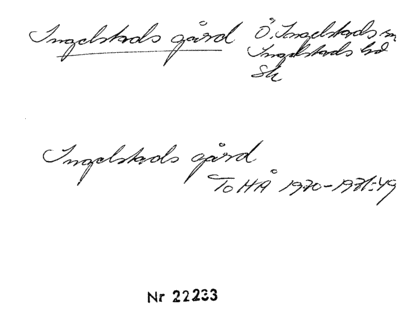 Ingelstads gård Ö. Ingelstads sn
Ingelstads hd
Sk
Ingelstads gård
To HÅ 1970-1971:49
Nr 22233